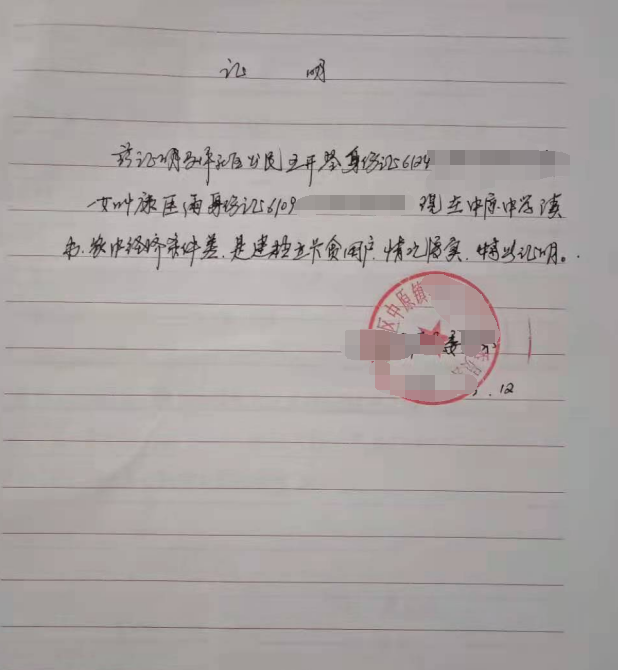 证 明
兹证明 社区公民王开 身份证6124
女叶康 雨身份证6109 现在中原中学读
书、家中经济条件差,是建档立卡贫困户,情况属实,特此证明。
区中原镇 委员会
委
.12